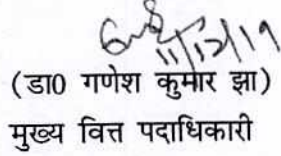 11/12/19
(डा0 गणेश कुमार झा)
मुख्य वित्त पदाधिकारी